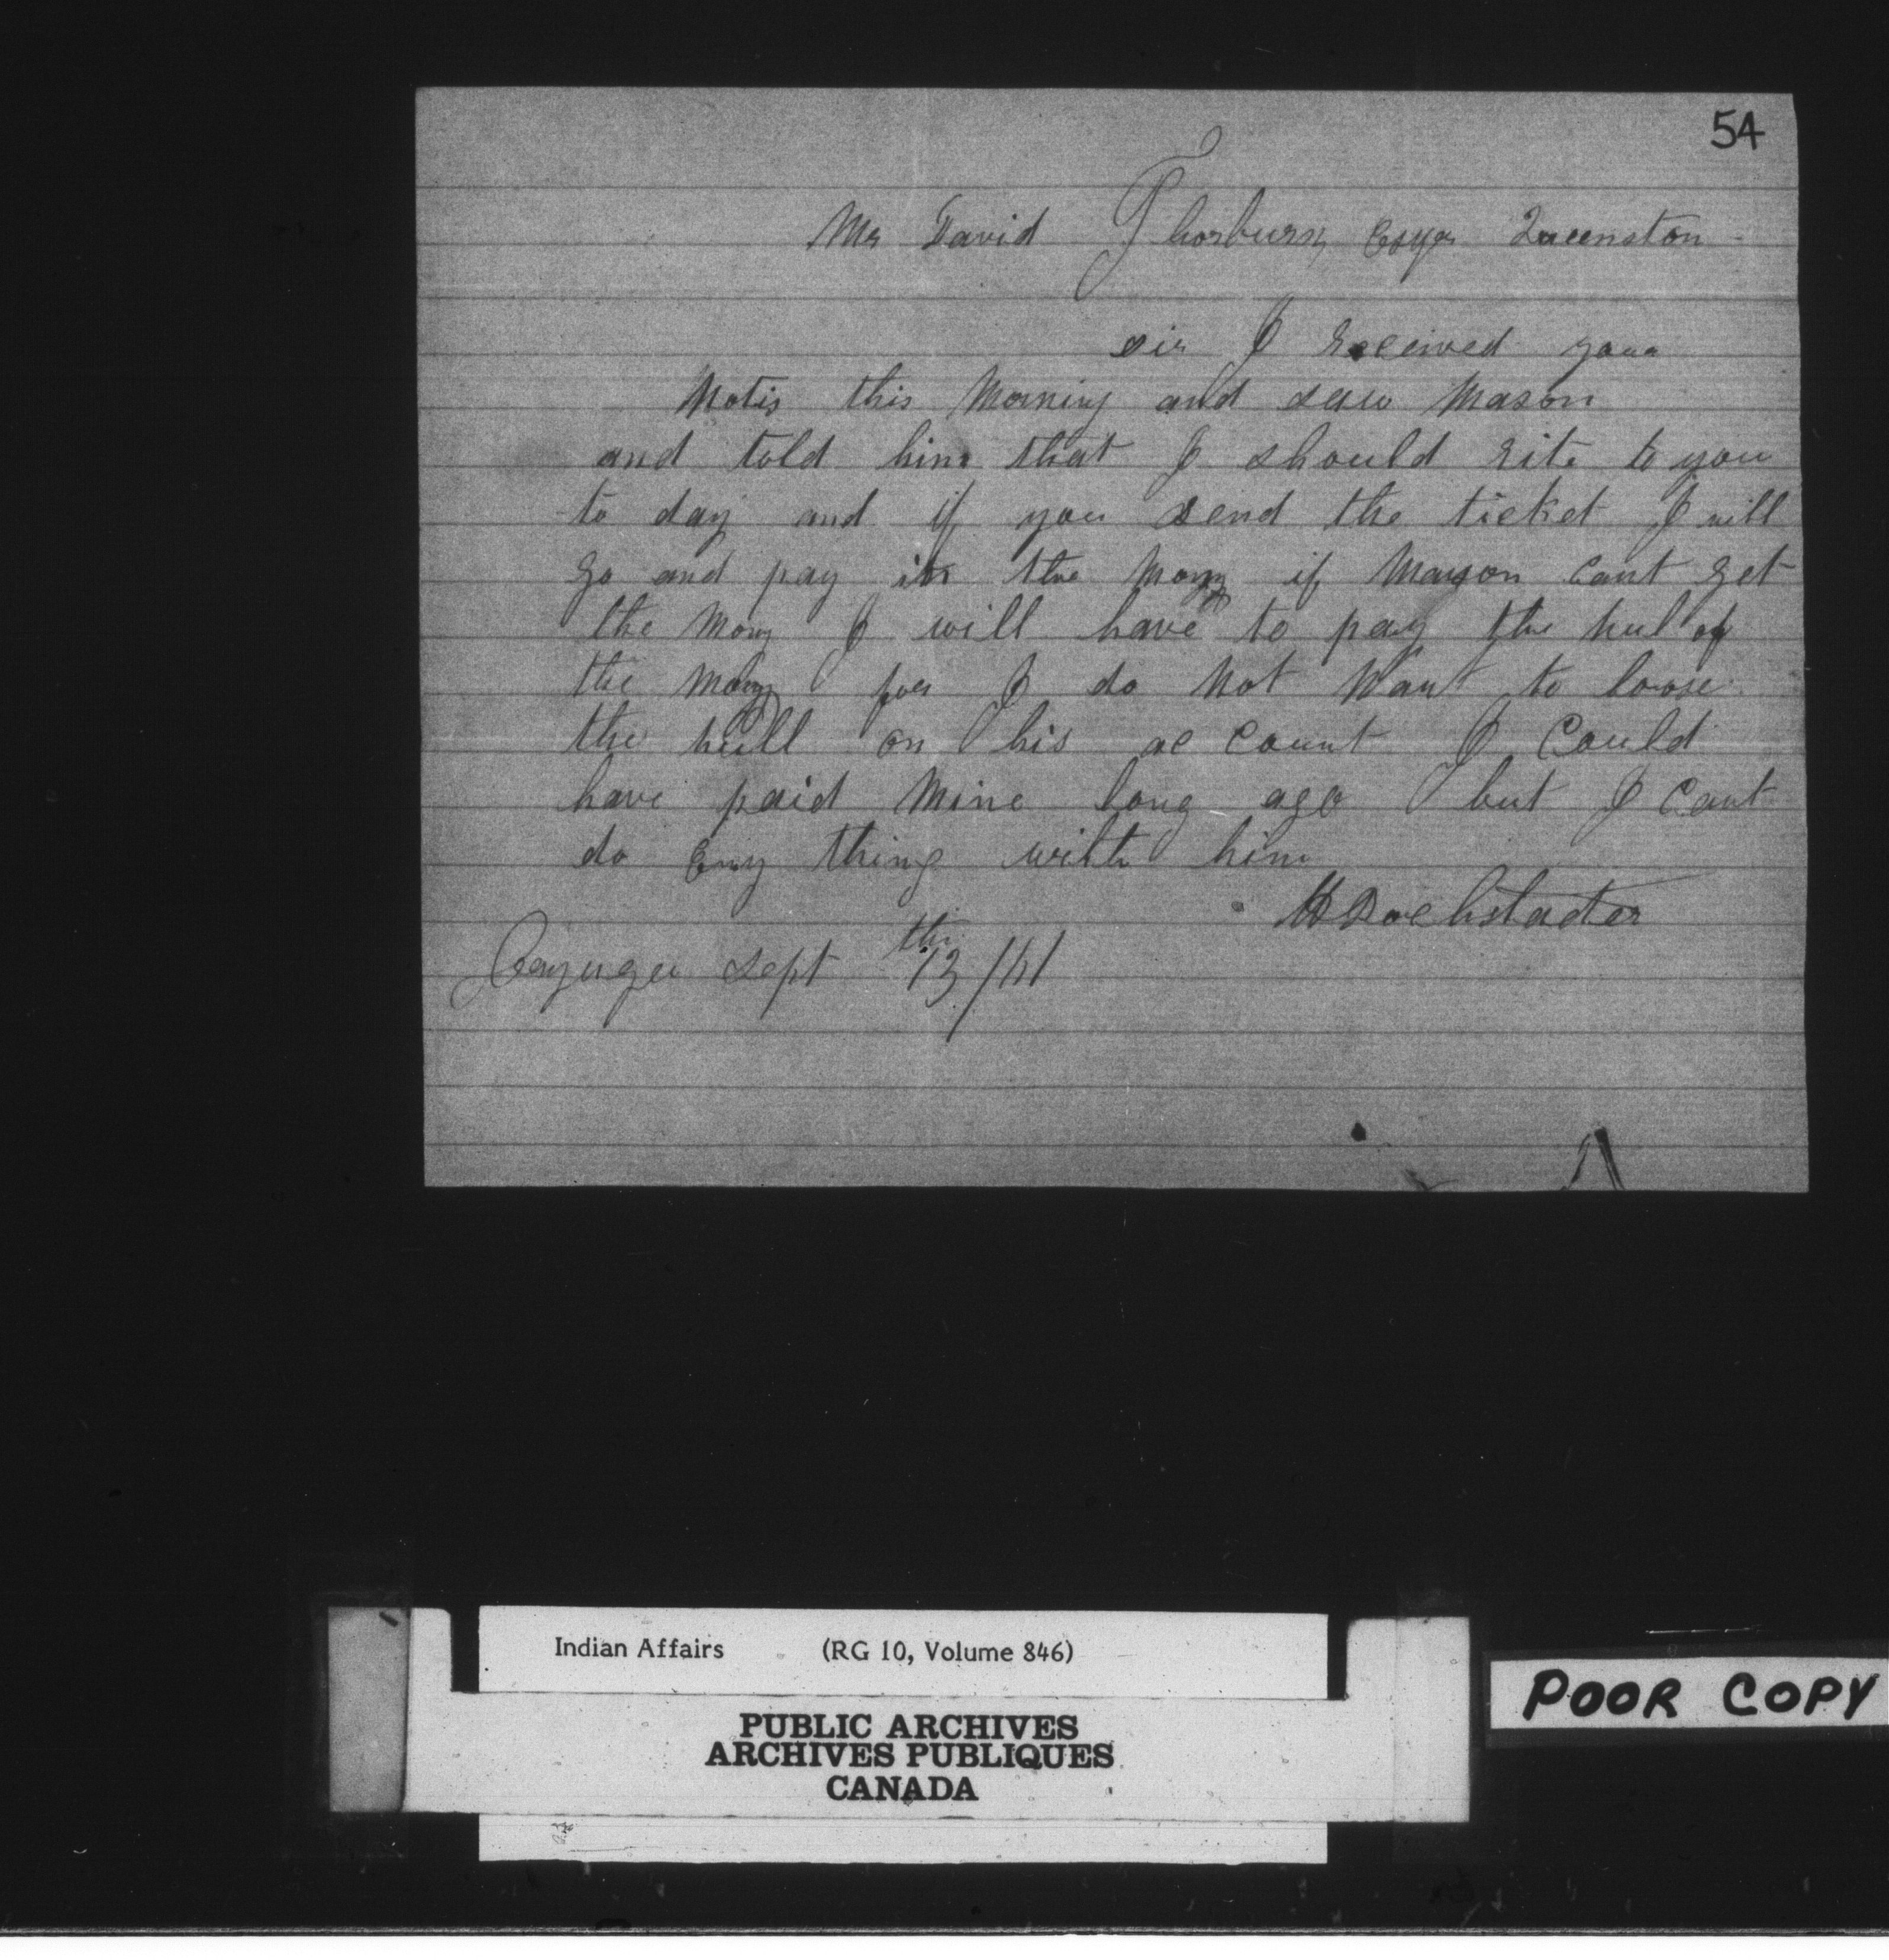 54
Mr David Thorburn Esqr Queenston
sir I received your
Notis this Morning and saw Mason
and told him that I should rite to you
to day and if you send the ticket I will
go and pay in the Mony if Mason cant get
the Mony I will have to pay the hul of
the Mony for I do Not Want to loose
the hull on his ac count I Could
have paid Mine long ago but I Cant
do eny thing with him
Dochstader
Cayuga sept 13th /61
Indian Affairs (RG 10, Volume 846)
PUBLIC ARCHIVES
ARCHIVES PUBLIQUES
CANADA
POOR COPY